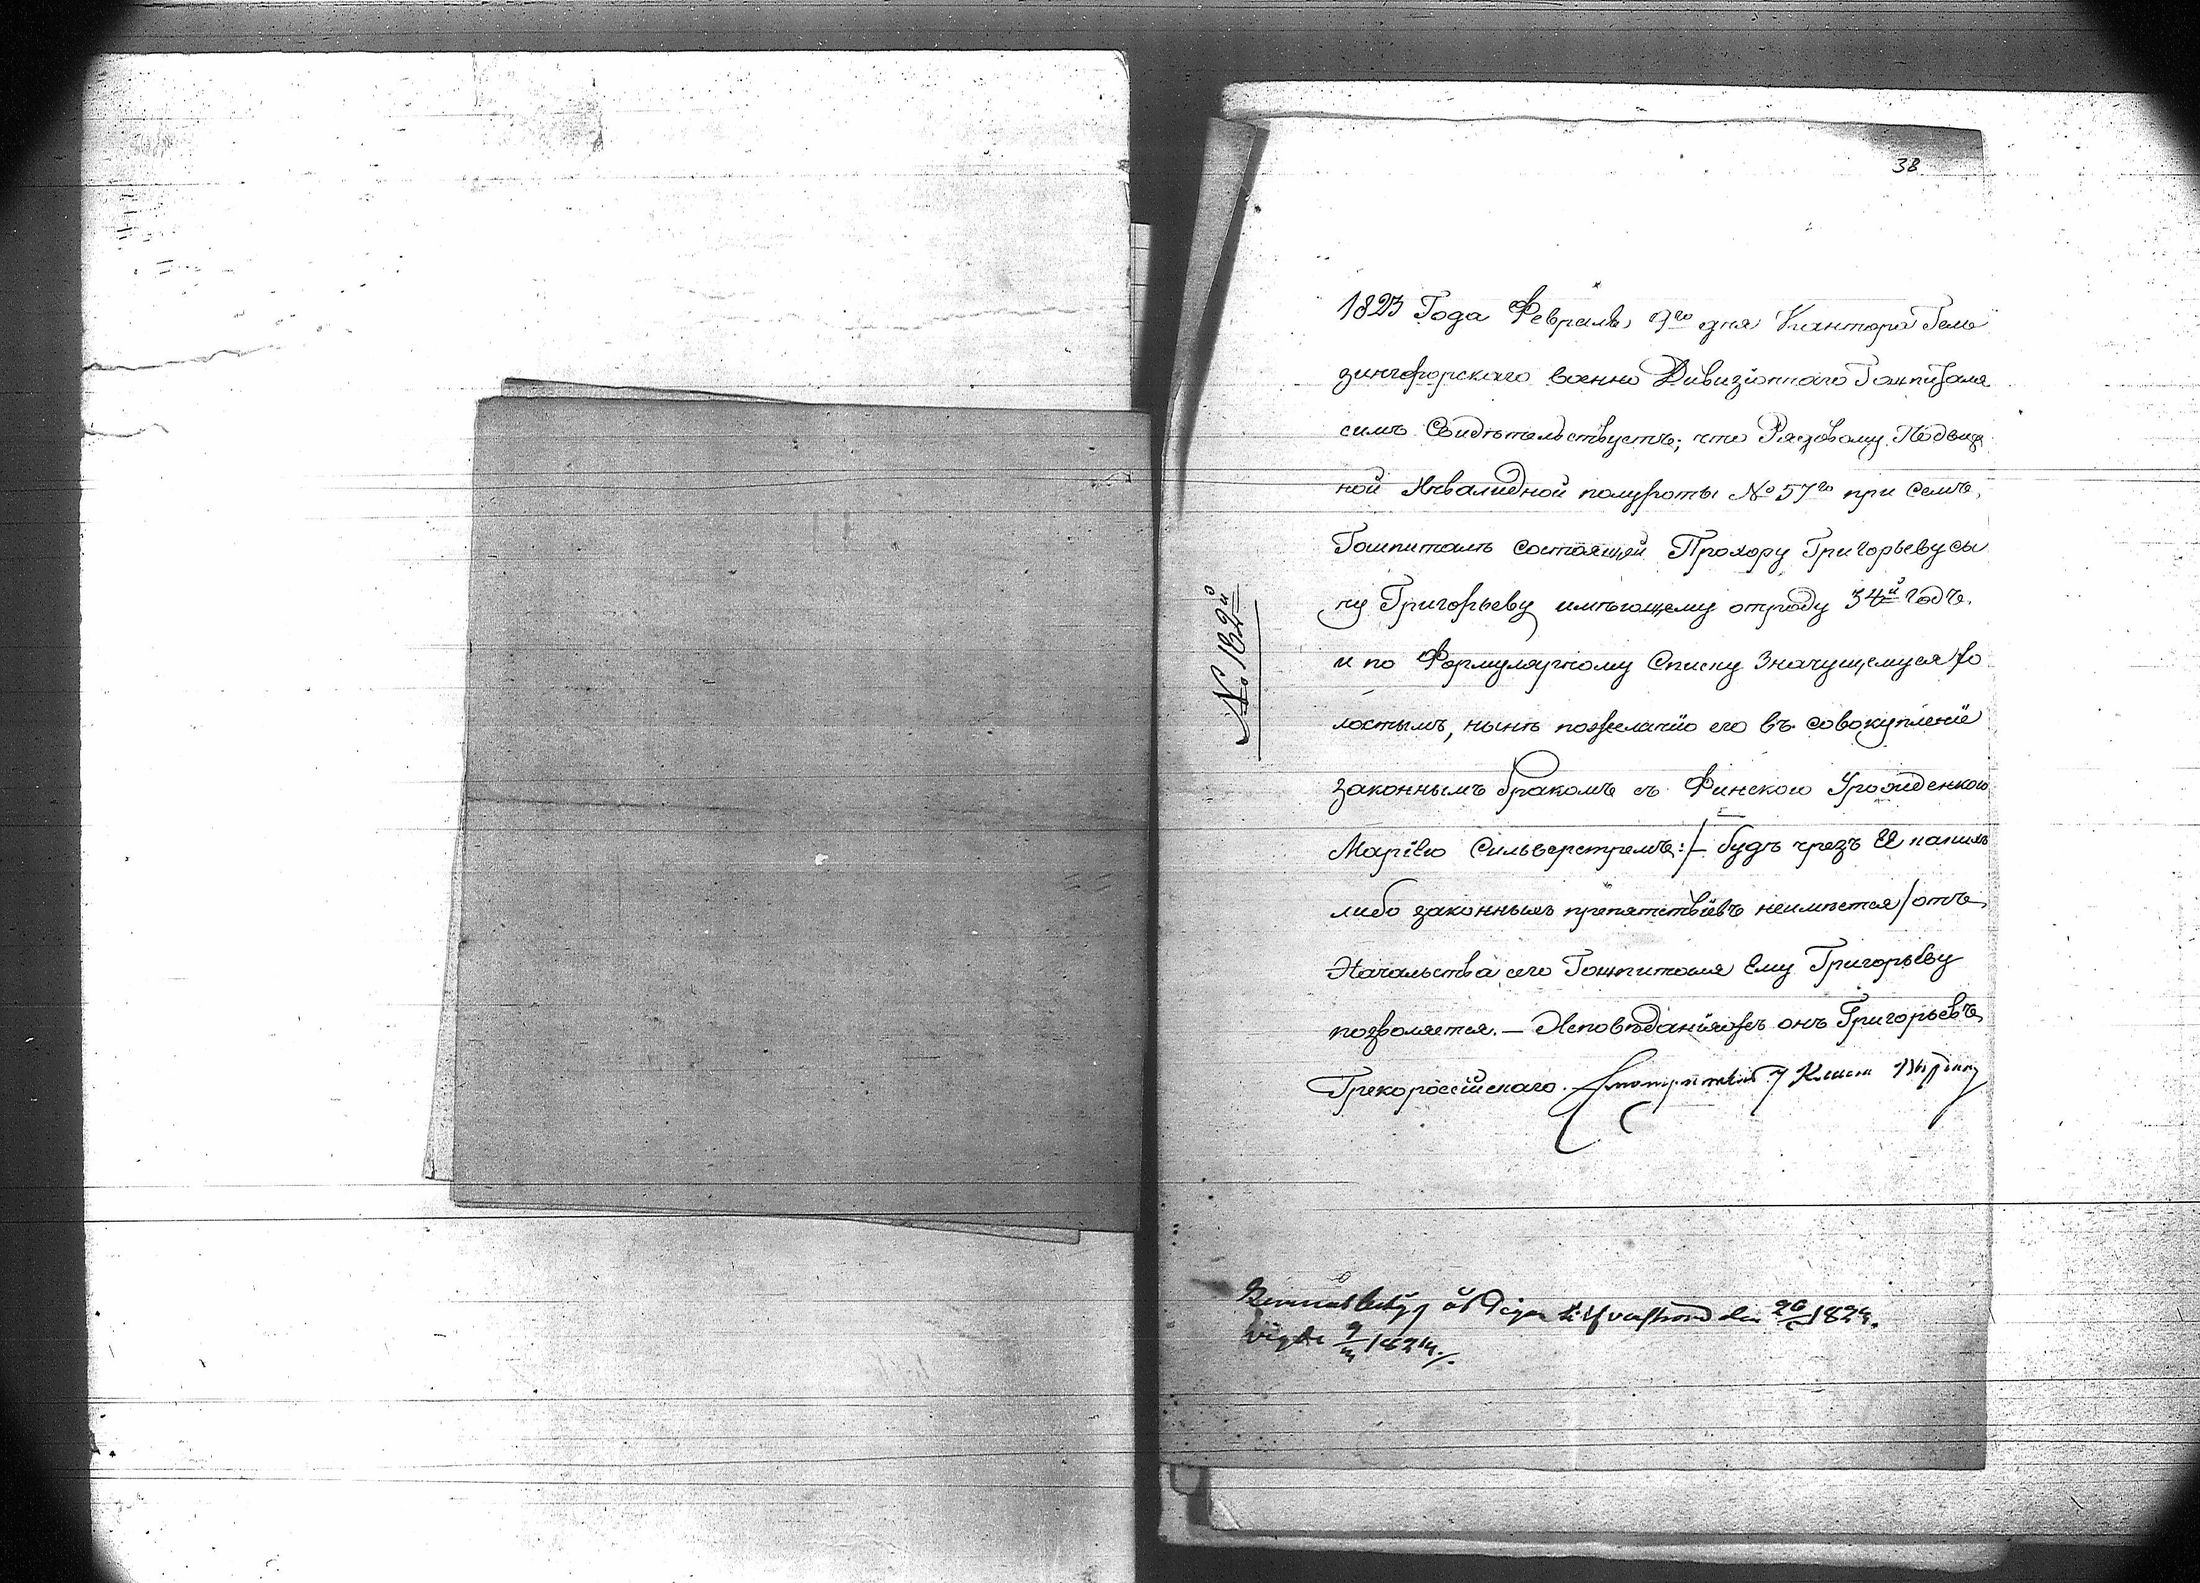 38
1823 Года Февраля 9го дня Кантора Гель
зингфорскаго военно Дивизіоннаго Гошпиталя
симъ Свидѣтельствуетъ; что Рядовому Подвиж
ной Инвалидной полуроты № 57го при семъ
Гошпиталѣ состоящей Прохору Григорьеву сы
ну Григорьеву имѣющему отроду 34й годъ
и по Формулярному Списку Значущемуся хо
лостымъ, нынѣ пожеланію его въ совокупленіе
законнымъ бракомъ съ Финскою Урожденкою
Маріею Сильверстремъ :/ будѣ чрезъ
либо законныхъ препятствіевъ неимѣется / отъ
Начальства сего Гошпиталя Ему Григорьеву
позволяется. — Исповѣданіяжъ онъ Григорьевъ
Грекороссійскаго. Смотритель 7 Класса
№ 182й
den 26 1824.
vigde 9/3 1824 ./.